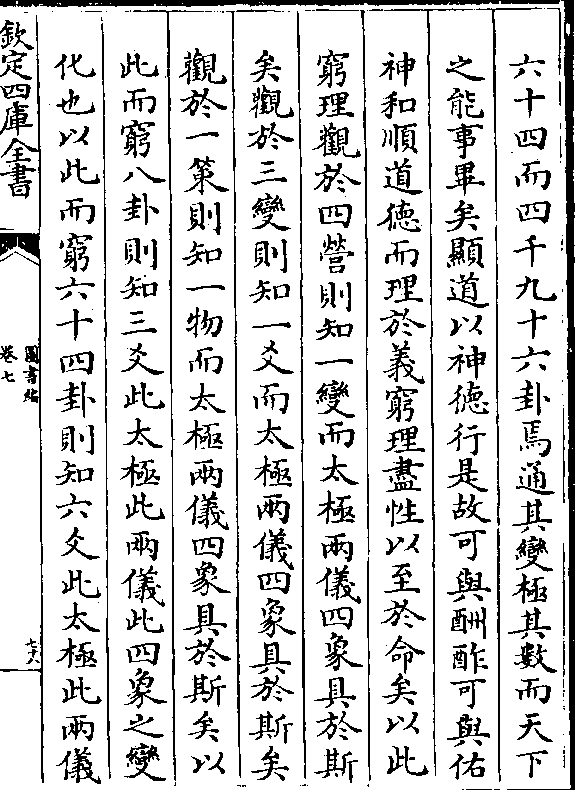 六十四而四千九十六卦焉通其變極其數而天下
之能事畢矣顯道以神徳行是故可與酬酢可與佑
神和順道徳而理於義窮理盡性以至於命矣以此
窮理觀於四營則知一變而太極兩儀四象具於斯
矣觀於三變則知一爻而太極兩儀四象具於斯矣
觀於一策則知一物而太極兩儀四象具於斯矣以
此而窮八卦則知三爻此太極此兩儀此四象之變
化也以此而窮六十四卦則知六爻此太極此兩儀
欽定四庫全書
圖書編
卷七